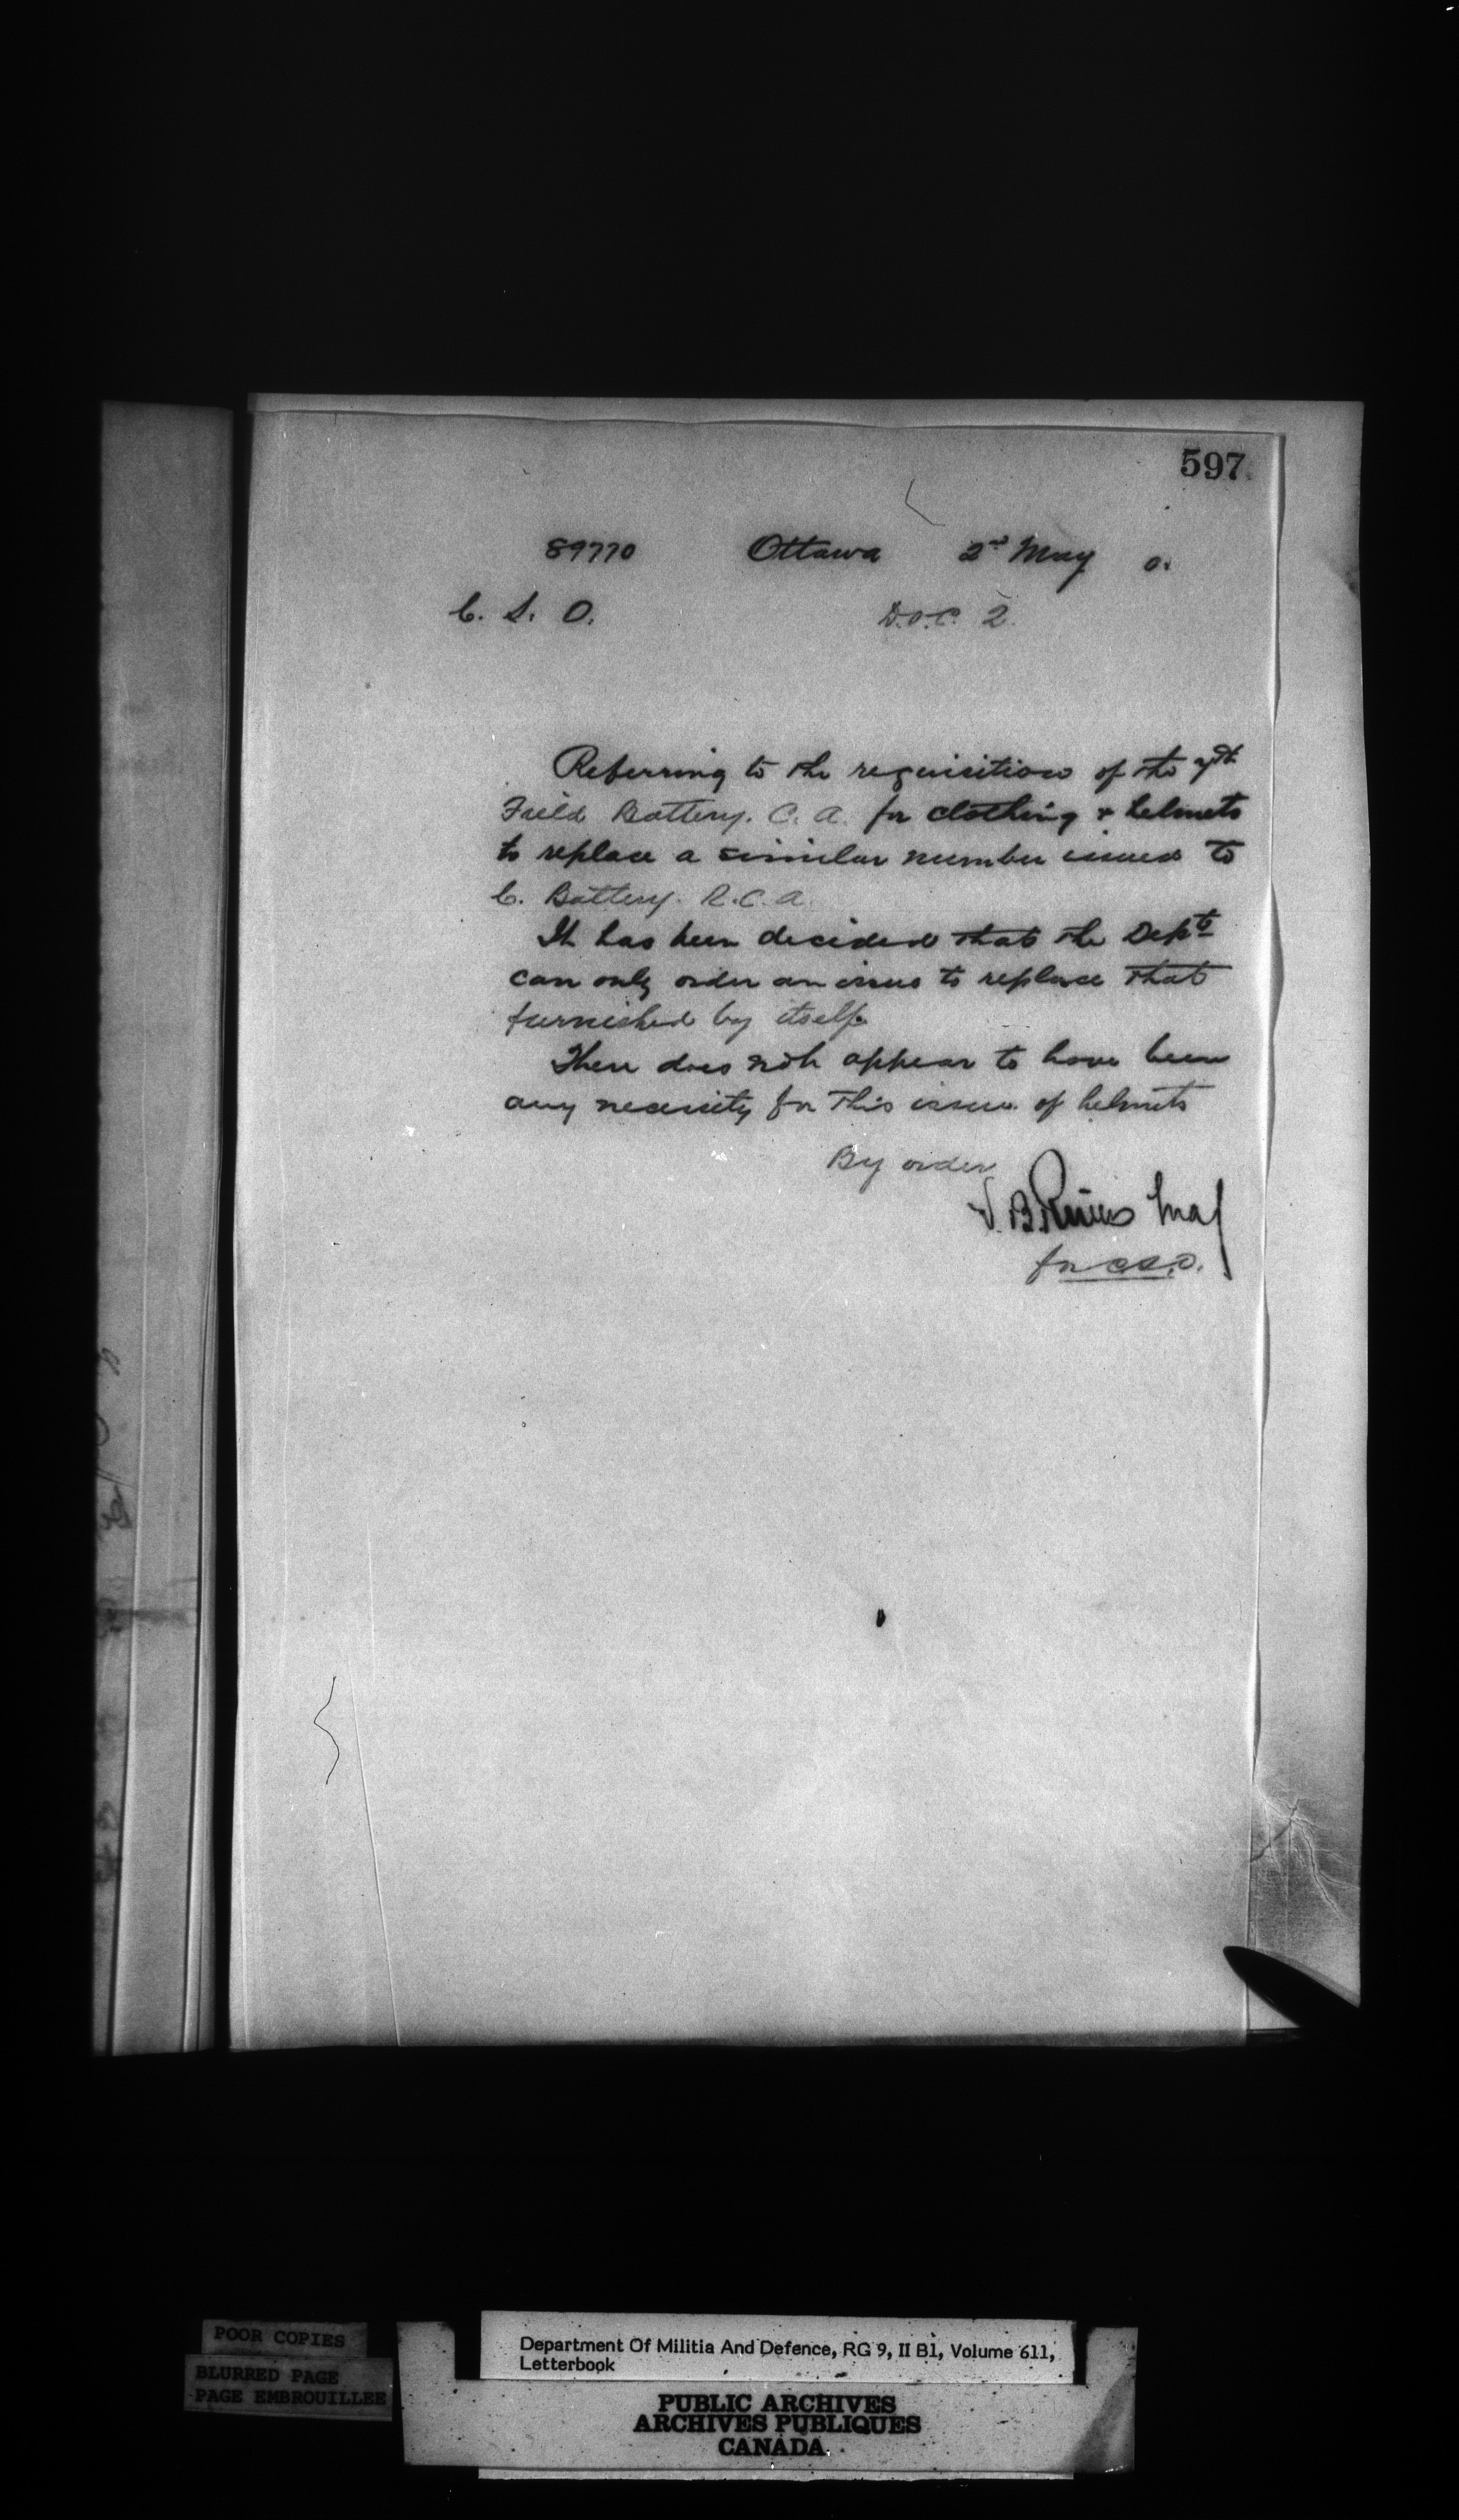 597
89770 Ottawa 2nd May 0.
C. S. O. D.O.C. 2.
Referring to the requisition of the 7th
Field Battery. C. A. for clothing + helmets
to replace a similar number issued to
C. Battery. R.C.A.
It has been decided that the Dept
can only order an issue to replace that
furnished by itself.
There does not appear to have been
any necessity for this issue of helmets
By order
Maj
for C.S.O.
POOR COPIES
BLURRED PAGE
PAGE EMBROUILLEE
Department Of Militia And Defence, RG 9, II B1, Volume 611,
Letterbook
PUBLIC ARCHIVES
ARCHIVES PUBLIQUES
CANADA